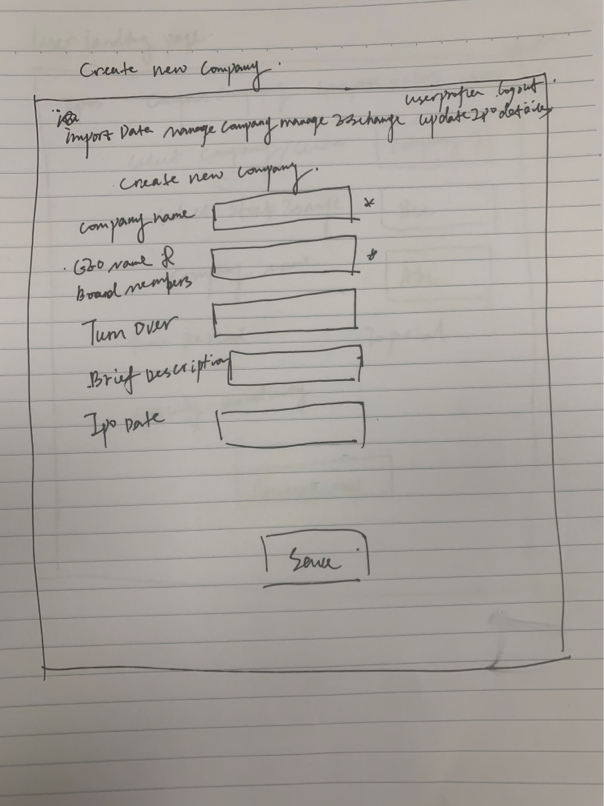 Create new Company.
userprofier logout.
import Data manage Company manage Exchange update Ipo details
Create new Company.
Company name *
CEO name &
Board members *
Turn Over
Brief Description
Ipo Date
Save